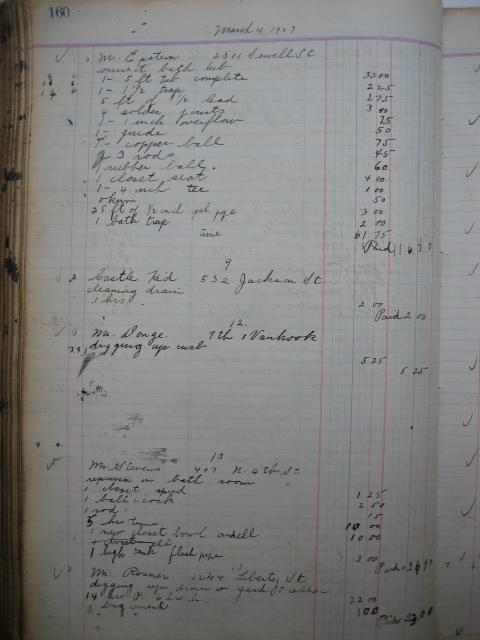 160
March 4, 1927
Mr. Epstein 2301 Sewell St
connect bath tub
1 - 5 ft tub complete 33 00
1 - 1 1/2 trap 2 25
5 ft of 1 1/2 lead 2 75
4 solder joints 3 00
1 - 1 inch overflow 75
1 - guide 50
1 - copper ball 75
3 rods 45
1 rubber ball. 60
1 closet seat 4 00
1 - 4 inch tee 1 00
oakum 50
25 ft of 1/2 inch gal pipe 3 00
1 bath trap 2 00
time 61 75
Paid
9
Castle Kid 532 Jackson St
cleaning drain
1 hrs. 2 00
Paid 2 00
12.
Mr. Donge. 7th & Vanhook
digging up curb
5 25
5 25
13
Mr. Stevens 407 N. 4th St
repairs in bath room
1 closet spud 1 25
1 ball-cock 2 50
1 rod 15
5 hrs time 10 00
1 new closet bowl and ell 10 00
1 high tank flush pipe 3 00
Paid
13
Mr. Rosner 1244 Liberty St.
digging up drain in yard & cellar
14 hrs P. 6 hrs h. 22 00
1 bag cement 1 00
Paid 23 00